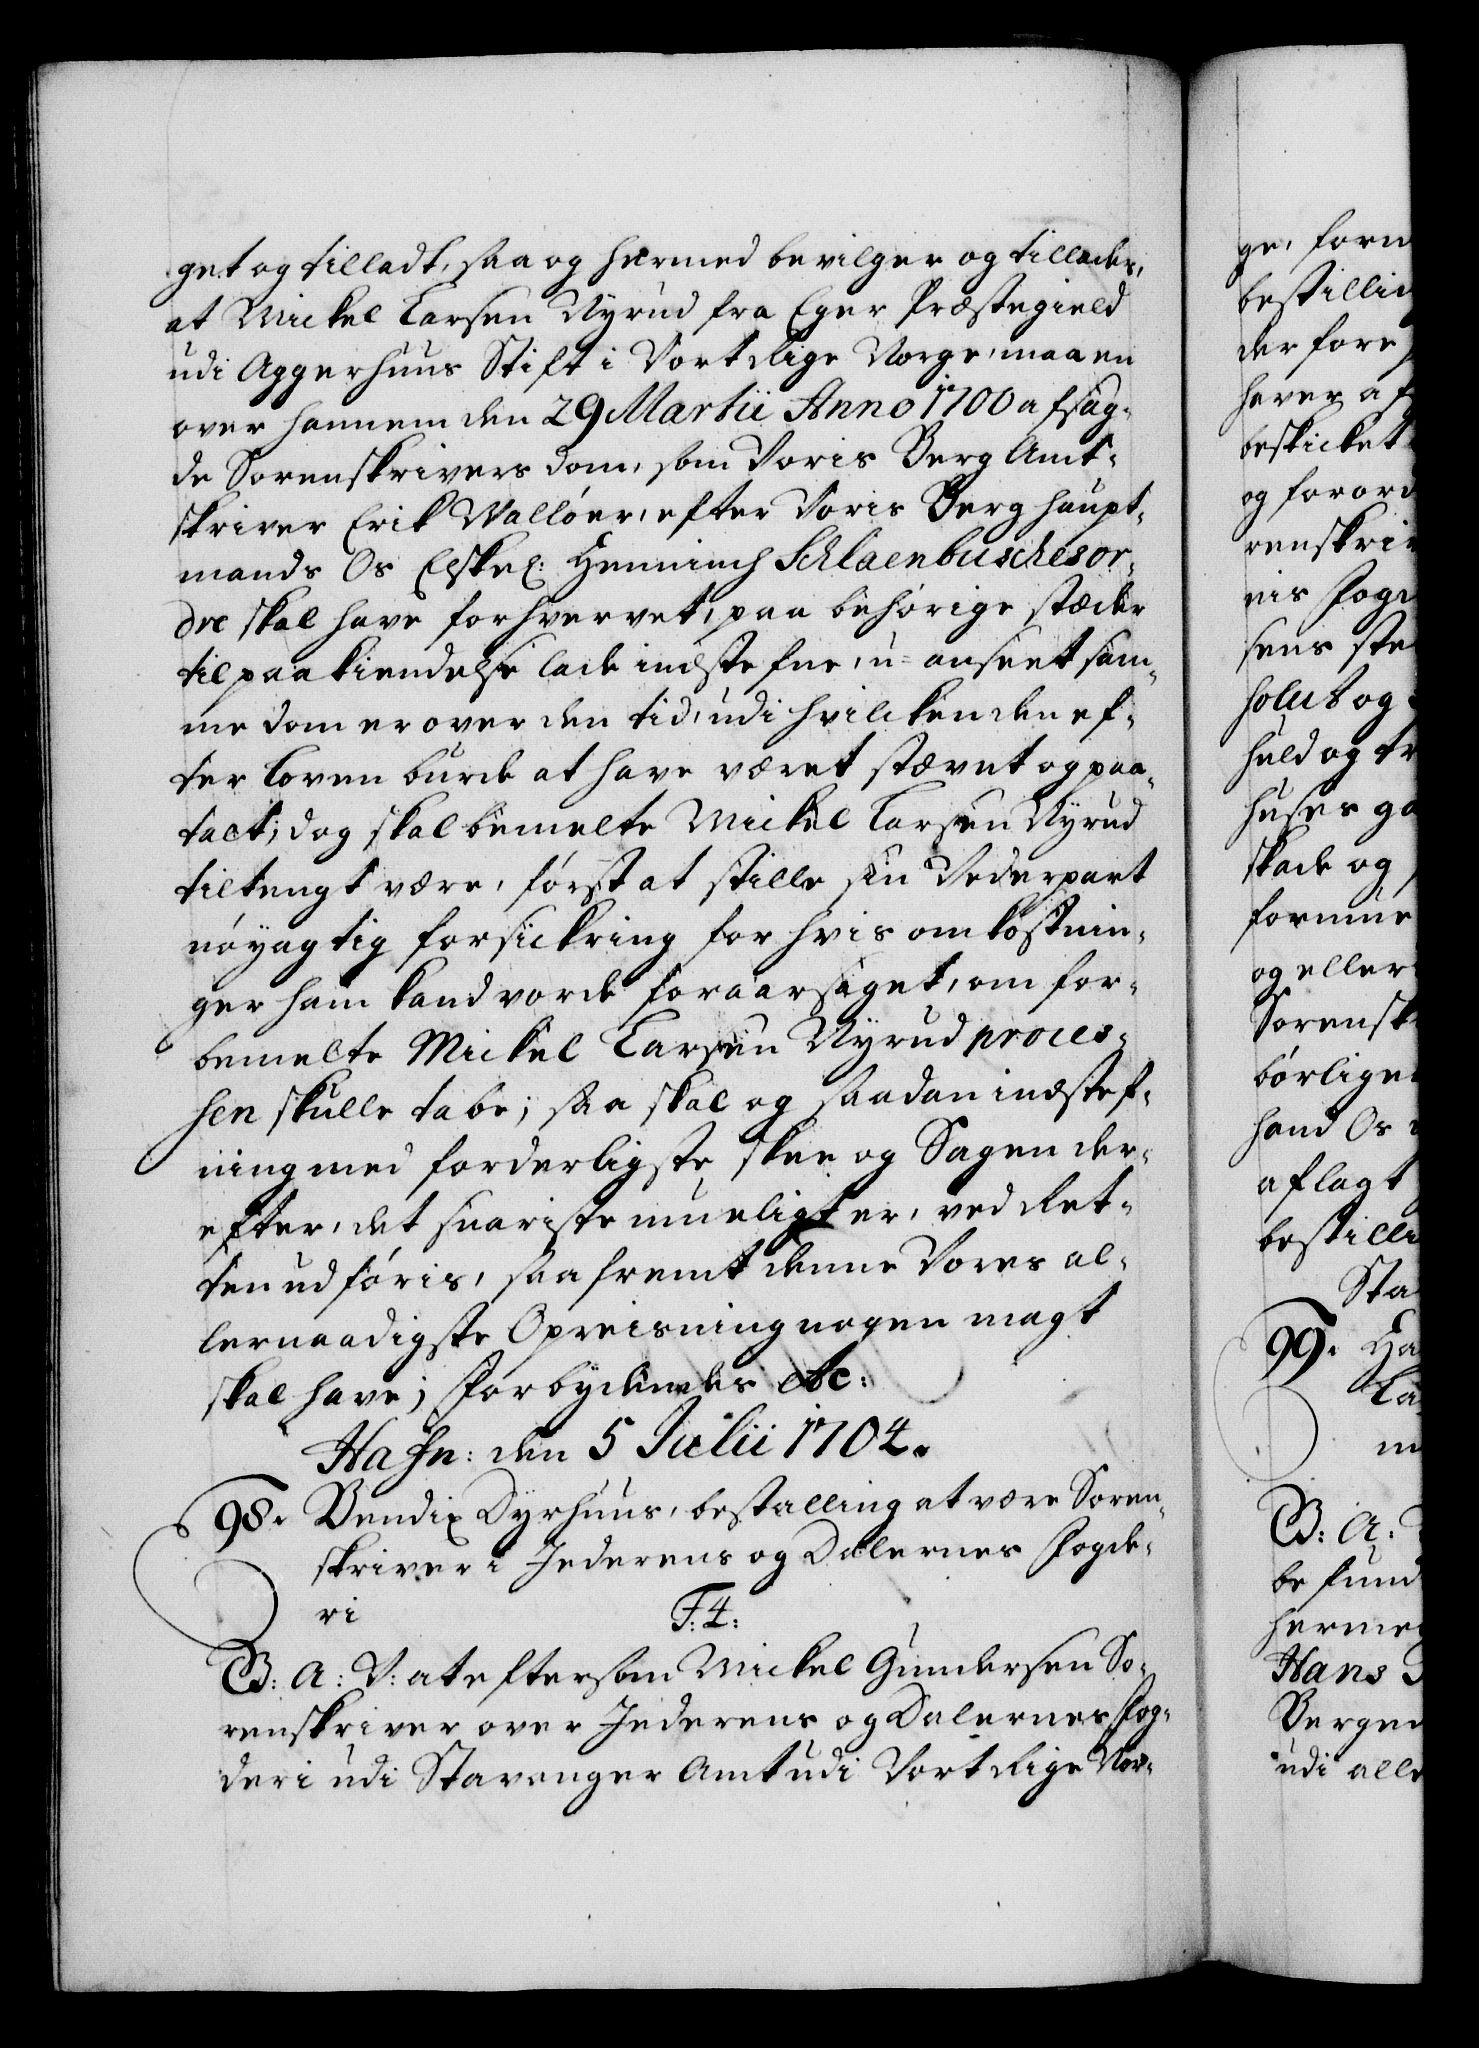 get og tilladt, saa og hermed bevilger og tillader,
at Mickel Larsen Nyrud fra Eger Præstegield
udi Aggerhuus Stift i Vort Rige Norge, maa en
over hannem den 29 Martii Anno 1700 afsag-
de Sorenskrivers dom, som Voris Berg Amt-
skriver Erik Wallöer, efter Voris Berghaupt-
mands Os Elskel: Henninch Schlaenbusches or-
dre skal have forhvervet, paa behörige stæder
til paakiendelse lade indstefne, u-anseet sam-
me dom er over den tid, udi hvilcken den ef-
ter loven burde at have været stævnt og paa-
talt; dog skal bemelte Mickel Larsen Nyrud
tiltengt være, först at stille sin Vederpart
nöyagtig forsickring for hvis omkostnin-
ger ham kand vorde foraarsaget, om for-
bemelte Mickel Larsen Nyrud proces-
sen skulle tabe; saa skal og saadan indstef-
ning med forderligste skee og Sagen der-
efter, det snariste mueligt er, ved Ret-
ten udföris, saafremt denne Vores al-
lernaadigste Opreisning nogen magt
skal have; Forbydendes etc:
Hafn: den 5 Julii 1704.
98. Bendix Dyrhuus, bestalling at være Soren-
skriver i Jederens og Dalernes Fogde-
ri
F: 4:
G: A: V: at eftersom Mickel Gundersen So-
renskriver over Jederens og Dalernes Fog-
deri udi Stavanger Amt udi Vort Rige Nor-
ge, form
bestillin
der fore
haver af
beskicket
og forord
renskriv
nis Fogd
sens ste
holdt og
huld og tr
huses ga
skade og
formue
og eller
Sorensk
börlige
hand Os
aflagt
bestilli
Sta
99. Ha
La
m
G: A:
befund
hermed
Hans
Bergen
udi alle